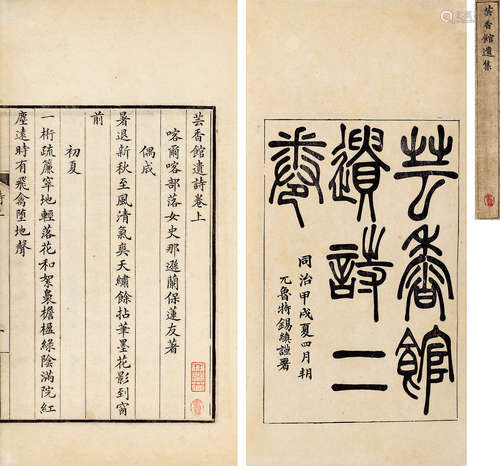 芸香館遺集
芸香館
遺詩二
卷
同治甲戌夏四月朔
兀魯特錫縝謹署
芸香館遺詩卷上
喀爾喀部落女史那遜蘭保蓮友著
偶成
暑退新秋至風清氣爽天繡餘拈筆墨花影到窗
前
初夏
一桁疏簾窣地輕落花和絮裊檐楹綠陰滿院紅
塵遠時有飛禽墮地聲